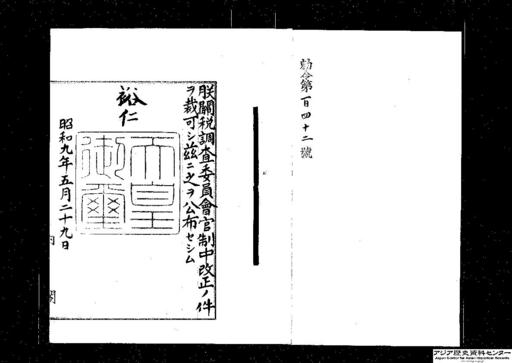 勅令第百四十二號
朕關税調査委員會官制中改正ノ件
ヲ裁可シ茲ニ之ヲ公布セシム
裕仁
天皇
御璽
昭和九年五月二十九日
内閣
アジア歴史資料センター
Japan Center for Asian Historical Records